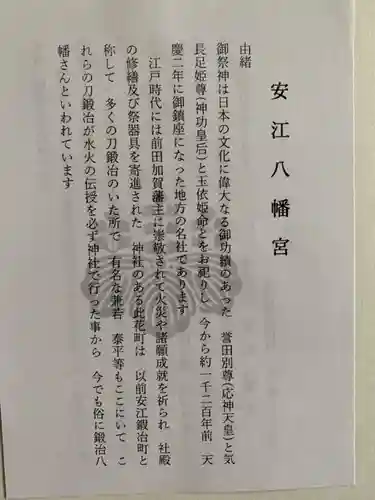 安江八幡宮
由緒
御祭神は日本の文化に偉大なる御功績のあった　誉田別尊(応神天皇)と気
長足姫尊(神功皇后)と玉依姫命とをお祀りし　今から約一千二百年前　天
慶二年に御鎮座になった地方の名社であります
江戸時代には前田加賀藩主に崇敬されて火災や諸願成就を祈られ　社殿
の修繕及び祭器具を寄進された　神社のある此花町は　以前安江鍛冶町と
称して　多くの刀鍛冶のいた所で　有名な兼若　泰平等もここにいて　こ
れらの刀鍛冶が水火の伝授を必ず神社で行った事から　今でも俗に鍛冶八
幡さんといわれています